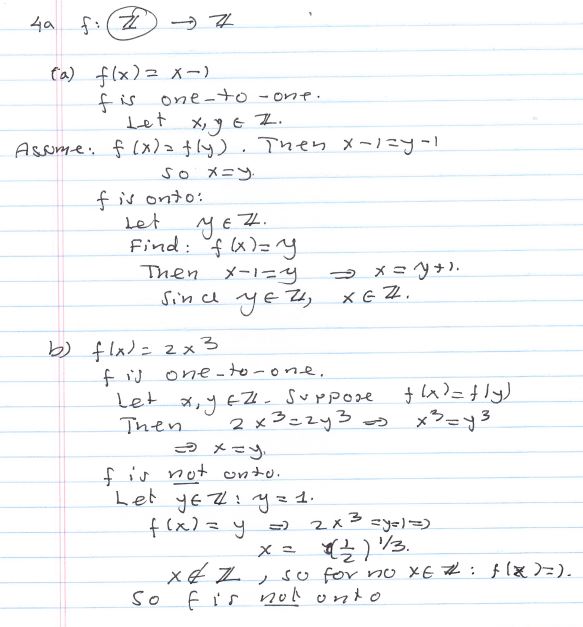 4a f: ℤ → ℤ
(a) f(x) = x-1
f is one-to-one.
Let x, y ∈ ℤ.
Assume: f(x) = f(y). Then x-1 = y-1
so x = y.
f is onto:
Let y ∈ ℤ.
Find: f(x) = y
Then x-1 = y ⇒ x = y+1.
Since y ∈ ℤ, x ∈ ℤ.
b) f(x) = 2x³
f is one-to-one.
Let x, y ∈ ℤ. Suppose f(x) = f(y)
Then 2x³ = 2y³ ⇒ x³ = y³
⇒ x = y.
f is not onto.
Let y ∈ ℤ: y = 1.
f(x) = y ⇒ 2x³ = y = 1 ⇒
x = (1/2)^1/3.
x ∉ ℤ, so for no x ∈ ℤ: f(x) = 1.
So f is not onto